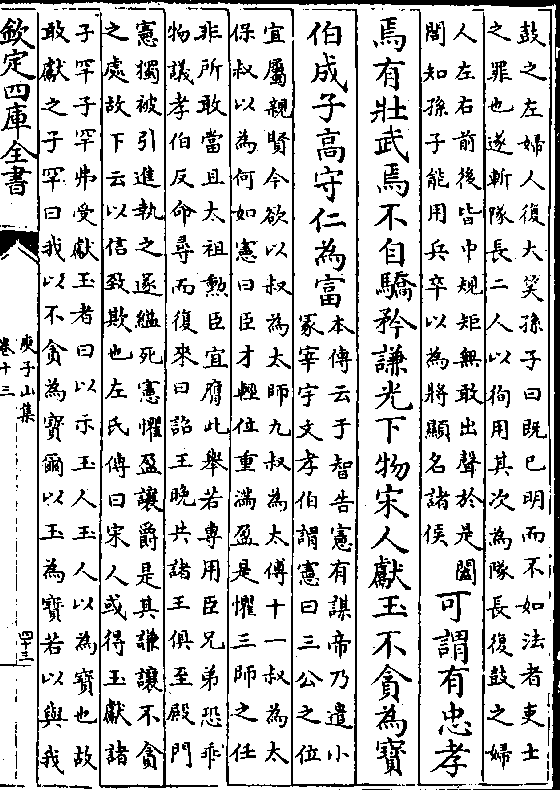 鼓之左婦人復大笑孫子曰既已明而不如法者吏士
之罪也遂斬隊長二人以徇用其次為隊長復鼓之婦
人左右前後皆中規矩無敢出聲於是闔
閭知孫子能用兵卒以為將顯名諸侯
可謂有忠孝
焉有壯武焉不自驕矜謙光下物宋人獻玉不貪為寶
伯成子高守仁為富
本傳云于智告憲有謀帝乃遣小
冢宰宇文孝伯謂憲曰三公之位
宜屬親賢今欲以叔為太師九叔為太傅十一叔為太
保叔以為何如憲曰臣才輕位重滿盈是懼三師之任
非所敢當且太祖勲臣宜膺此舉若專用臣兄弟恐乖
物議孝伯反命尋而復來曰詔王晚共諸王俱至殿門
憲獨被引進執之遂縊死憲懼盈讓爵是其謙讓不貪
之處故下云以信致欺也左氏傳曰宋人或得玉獻諸
子罕子罕弗受獻玉者曰以示玉人玉人以為寶也故
敢獻之子罕曰我以不貪為寶爾以玉為寶若以與我
欽定四庫全書
庾子山集
卷十三
四十三